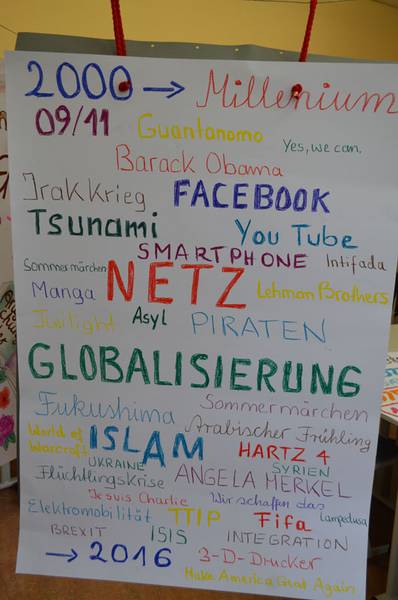 2000 → Millenium
09/11 Guantanomo
Yes, we can.
Barack Obama
Irak Krieg FACEBOOK
Tsunami You Tube
SMARTPHONE Intifada
Sommermärchen NETZ
Manga Lehman Brothers
Twilight Asyl PIRATEN
GLOBALISIERUNG
Fukushima Sommermärchen
World of Warcraft ISLAM Arabischer Frühling
HARTZ 4
UKRAINE SYRIEN
Flüchtlingskrise ANGELA MERKEL
Jesuis Charlie Wir schaffen das
Elektromobilität TTIP Fifa Lampedusa
BREXIT ISIS INTEGRATION
→ 2016 3-D-Drucker
Make America Great Again